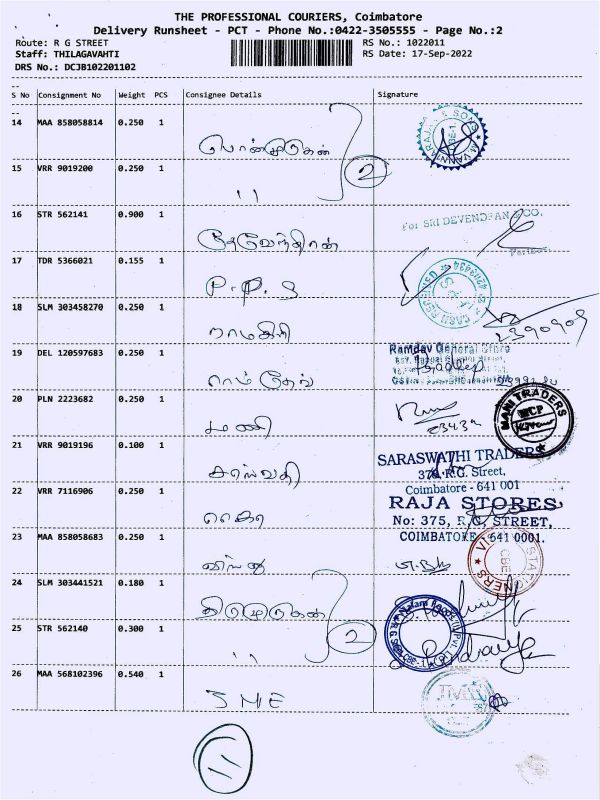 THE PROFESSIONAL COURIERS, Coimbatore
Delivery Runsheet - PCT - Phone No.:0422-3505555 - Page No.:2
Route: R G STREET RS No.: 1022011
Staff: THILAGAVAHTI RS Date: 17-Sep-2022
DRS No.: DCJB102201102
S No Consignment No Weight PCS Consignee Details Signature
14 MAA 858058814 0.250 1
பொன்முருகன்
15 VRR 9019200 0.250 1 2
״
16 STR 562141 0.900 1 For SRI DEVENDRAN & CO.
தேவேந்திரன்
17 TDR 5366021 0.155 1
P.P.S
18 SLM 303458270 0.250 1
ராமகிரி 2390909
19 DEL 120597683 0.250 1 Ramdev General Store
ராம்தேவ்
20 PLN 2223682 0.250 1 MANI TRADERS
மணி
21 VRR 9019196 0.100 1 SARASWATHI TRADERS
சரஸ்வதி 376, R.G. Street,
Coimbatore - 641 001
22 VRR 7116906 0.250 1 RAJA STORES
No: 375, R.G. STREET,
23 MAA 858058683 0.250 1 COIMBATORE - 641 0001.
24 SLM 303441521 0.180 1
திருமுருகன்
25 STR 562140 0.300 1 2
״
26 MAA 568102396 0.540 1
JME
11